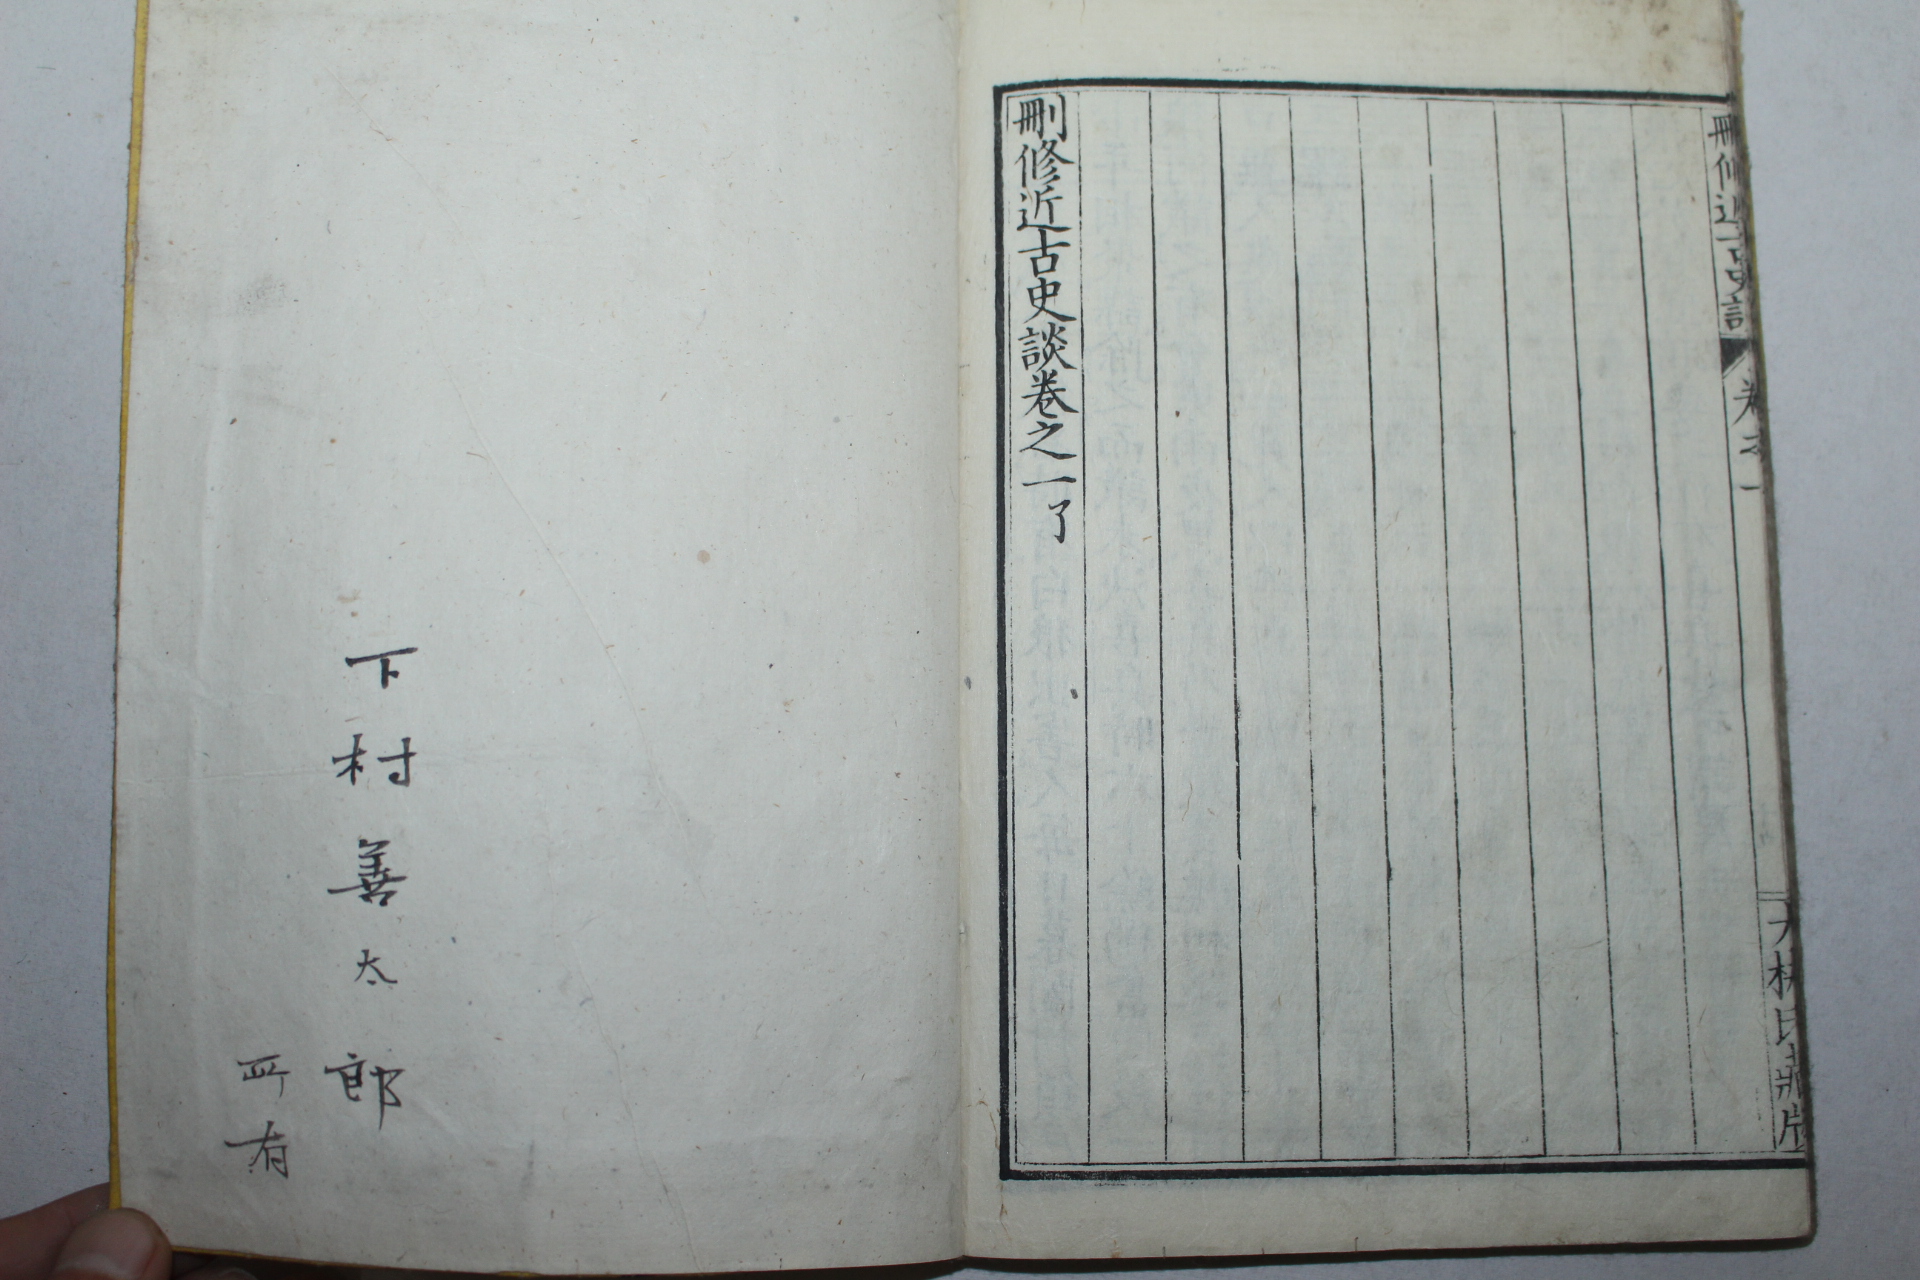 刪修近古史談
卷之一
大槻氏藏版
刪修近古史談卷之一了
下村善太郎
所有